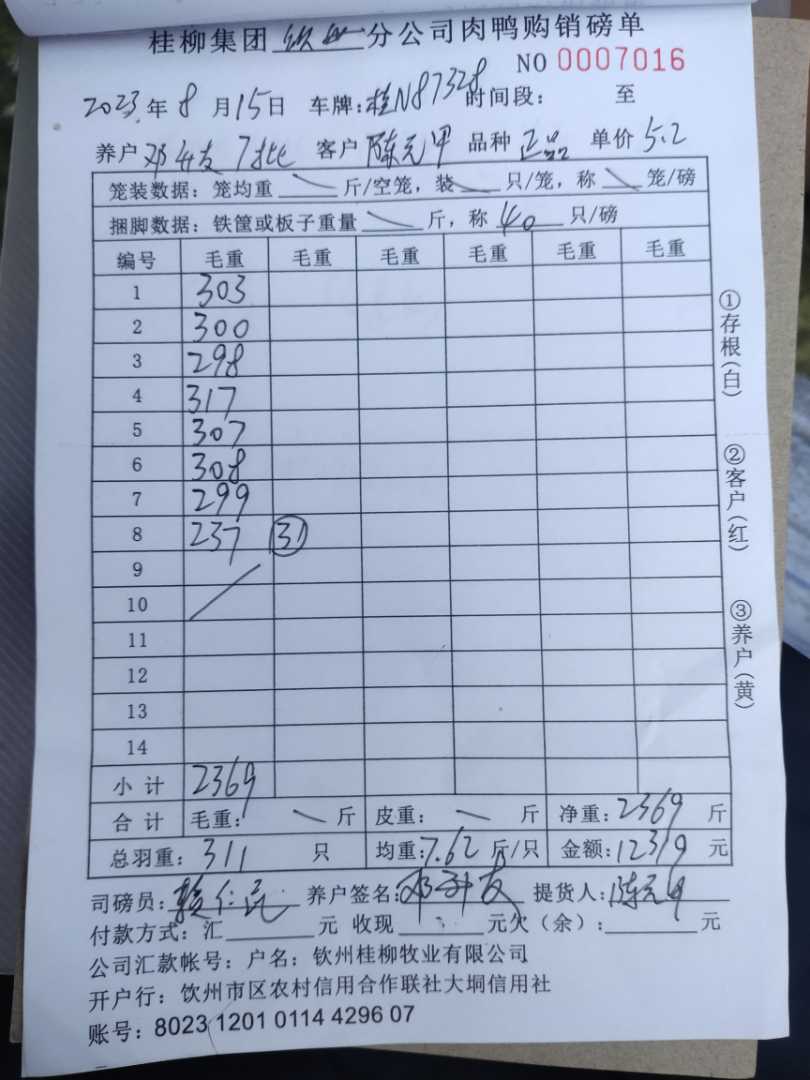 桂柳集团 钦州 分公司肉鸭购销磅单
NO 0007016
2023年 8 月 15日 车牌:桂N87328 时间段: 至
养户 邓 友 7批 客户 陈元甲 品种 正品 单价 5.2
笼装数据:笼均重 斤/空笼,装 只/笼,称 笼/磅
捆脚数据:铁筐或板子重量 斤,称 40 只/磅
编号 毛重 毛重 毛重 毛重 毛重 毛重
1 303
2 300
3 298
4 317
5 307
6 308
7 299
8 237 31
9
10
11
12
13
14
小 计 2369
合 计 毛重: 斤 皮重: 斤 净重:2369 斤
总羽重:311 只 均重:7.62 斤/只 金额:12319 元
司磅员: 养户签名:邓 友 提货人:陈元甲
付款方式:汇 元 收现 元欠(余): 元
公司汇款帐号:户名:钦州桂柳牧业有限公司
开户行:钦州市区农村信用合作联社大垌信用社
账号:8023 1201 0114 4296 07
①存根(白)
②客户(红)
③养户(黄)